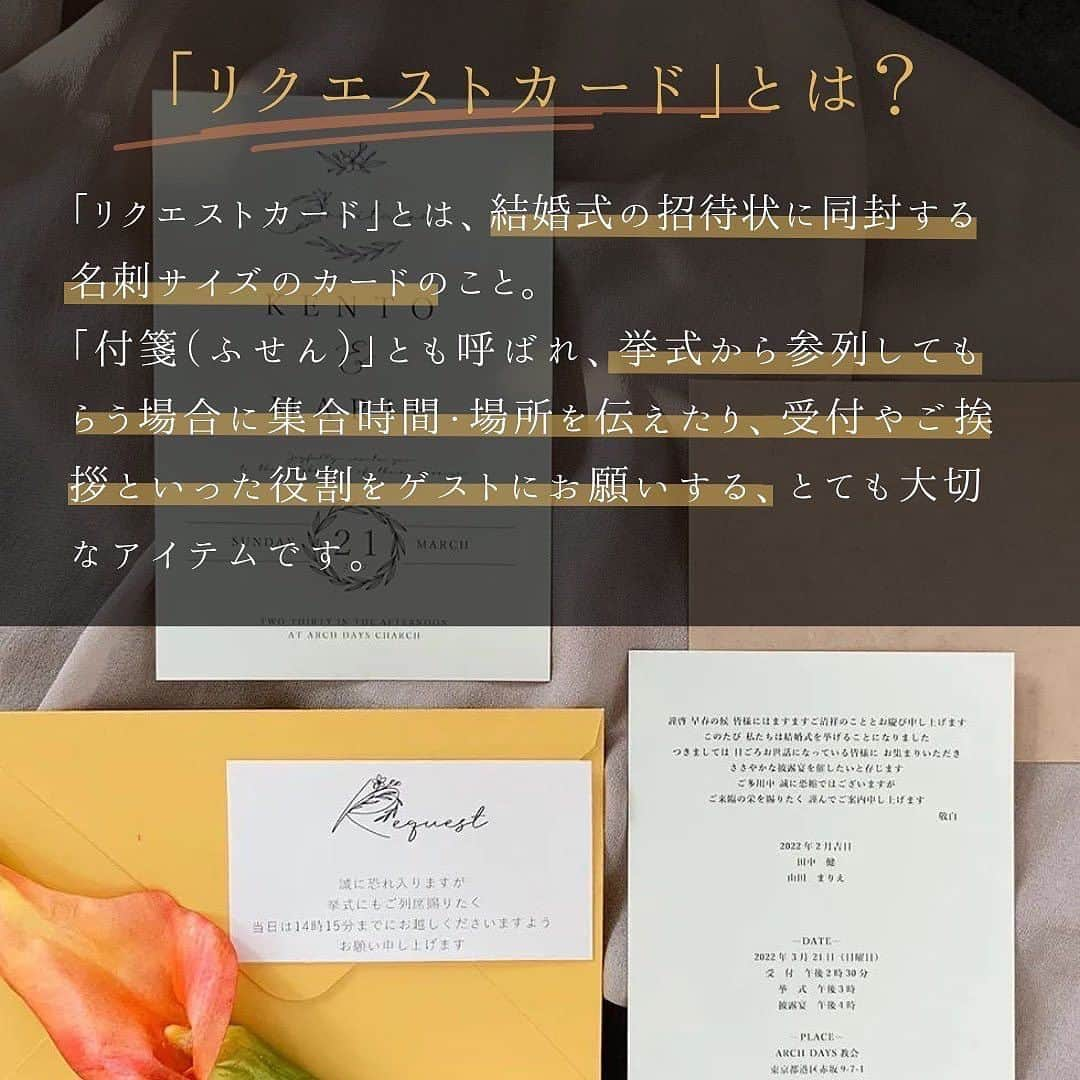 「リクエストカード」とは？
「リクエストカード」とは、結婚式の招待状に同封する
名刺サイズのカードのこと。
「付箋（ふせん）」とも呼ばれ、挙式から参列しても
らう場合に集合時間・場所を伝えたり、受付やご挨
拶といった役割をゲストにお願いする、とても大切
なアイテムです。
KENTO
&
SUNDAY 21 MARCH
TWO THIRTY IN THE AFTERNOON
AT ARCH DAYS CHARCH
Request
誠に恐れ入りますが
挙式にもご列席賜りたく
当日は14時15分までにお越しくださいますよう
お願い申し上げます
謹啓 早春の候 皆様にはますますご清祥のこととお慶び申し上げます
このたび 私たちは結婚式を挙げることになりました
つきましては 日ごろお世話になっている皆様に お集まりいただき
ささやかな披露宴を催したいと存じます
ご多用中 誠に恐縮ではございますが
ご来臨の栄を賜りたく 謹んでご案内申し上げます
敬白
2022年2月吉日
田中 健
山田 まりえ
―DATE―
2022年3月21日（日曜日）
受 付 午後2時30分
挙 式 午後3時
披露宴 午後4時
―PLACE―
ARCH DAYS 教会
東京都港区赤坂9-7-1